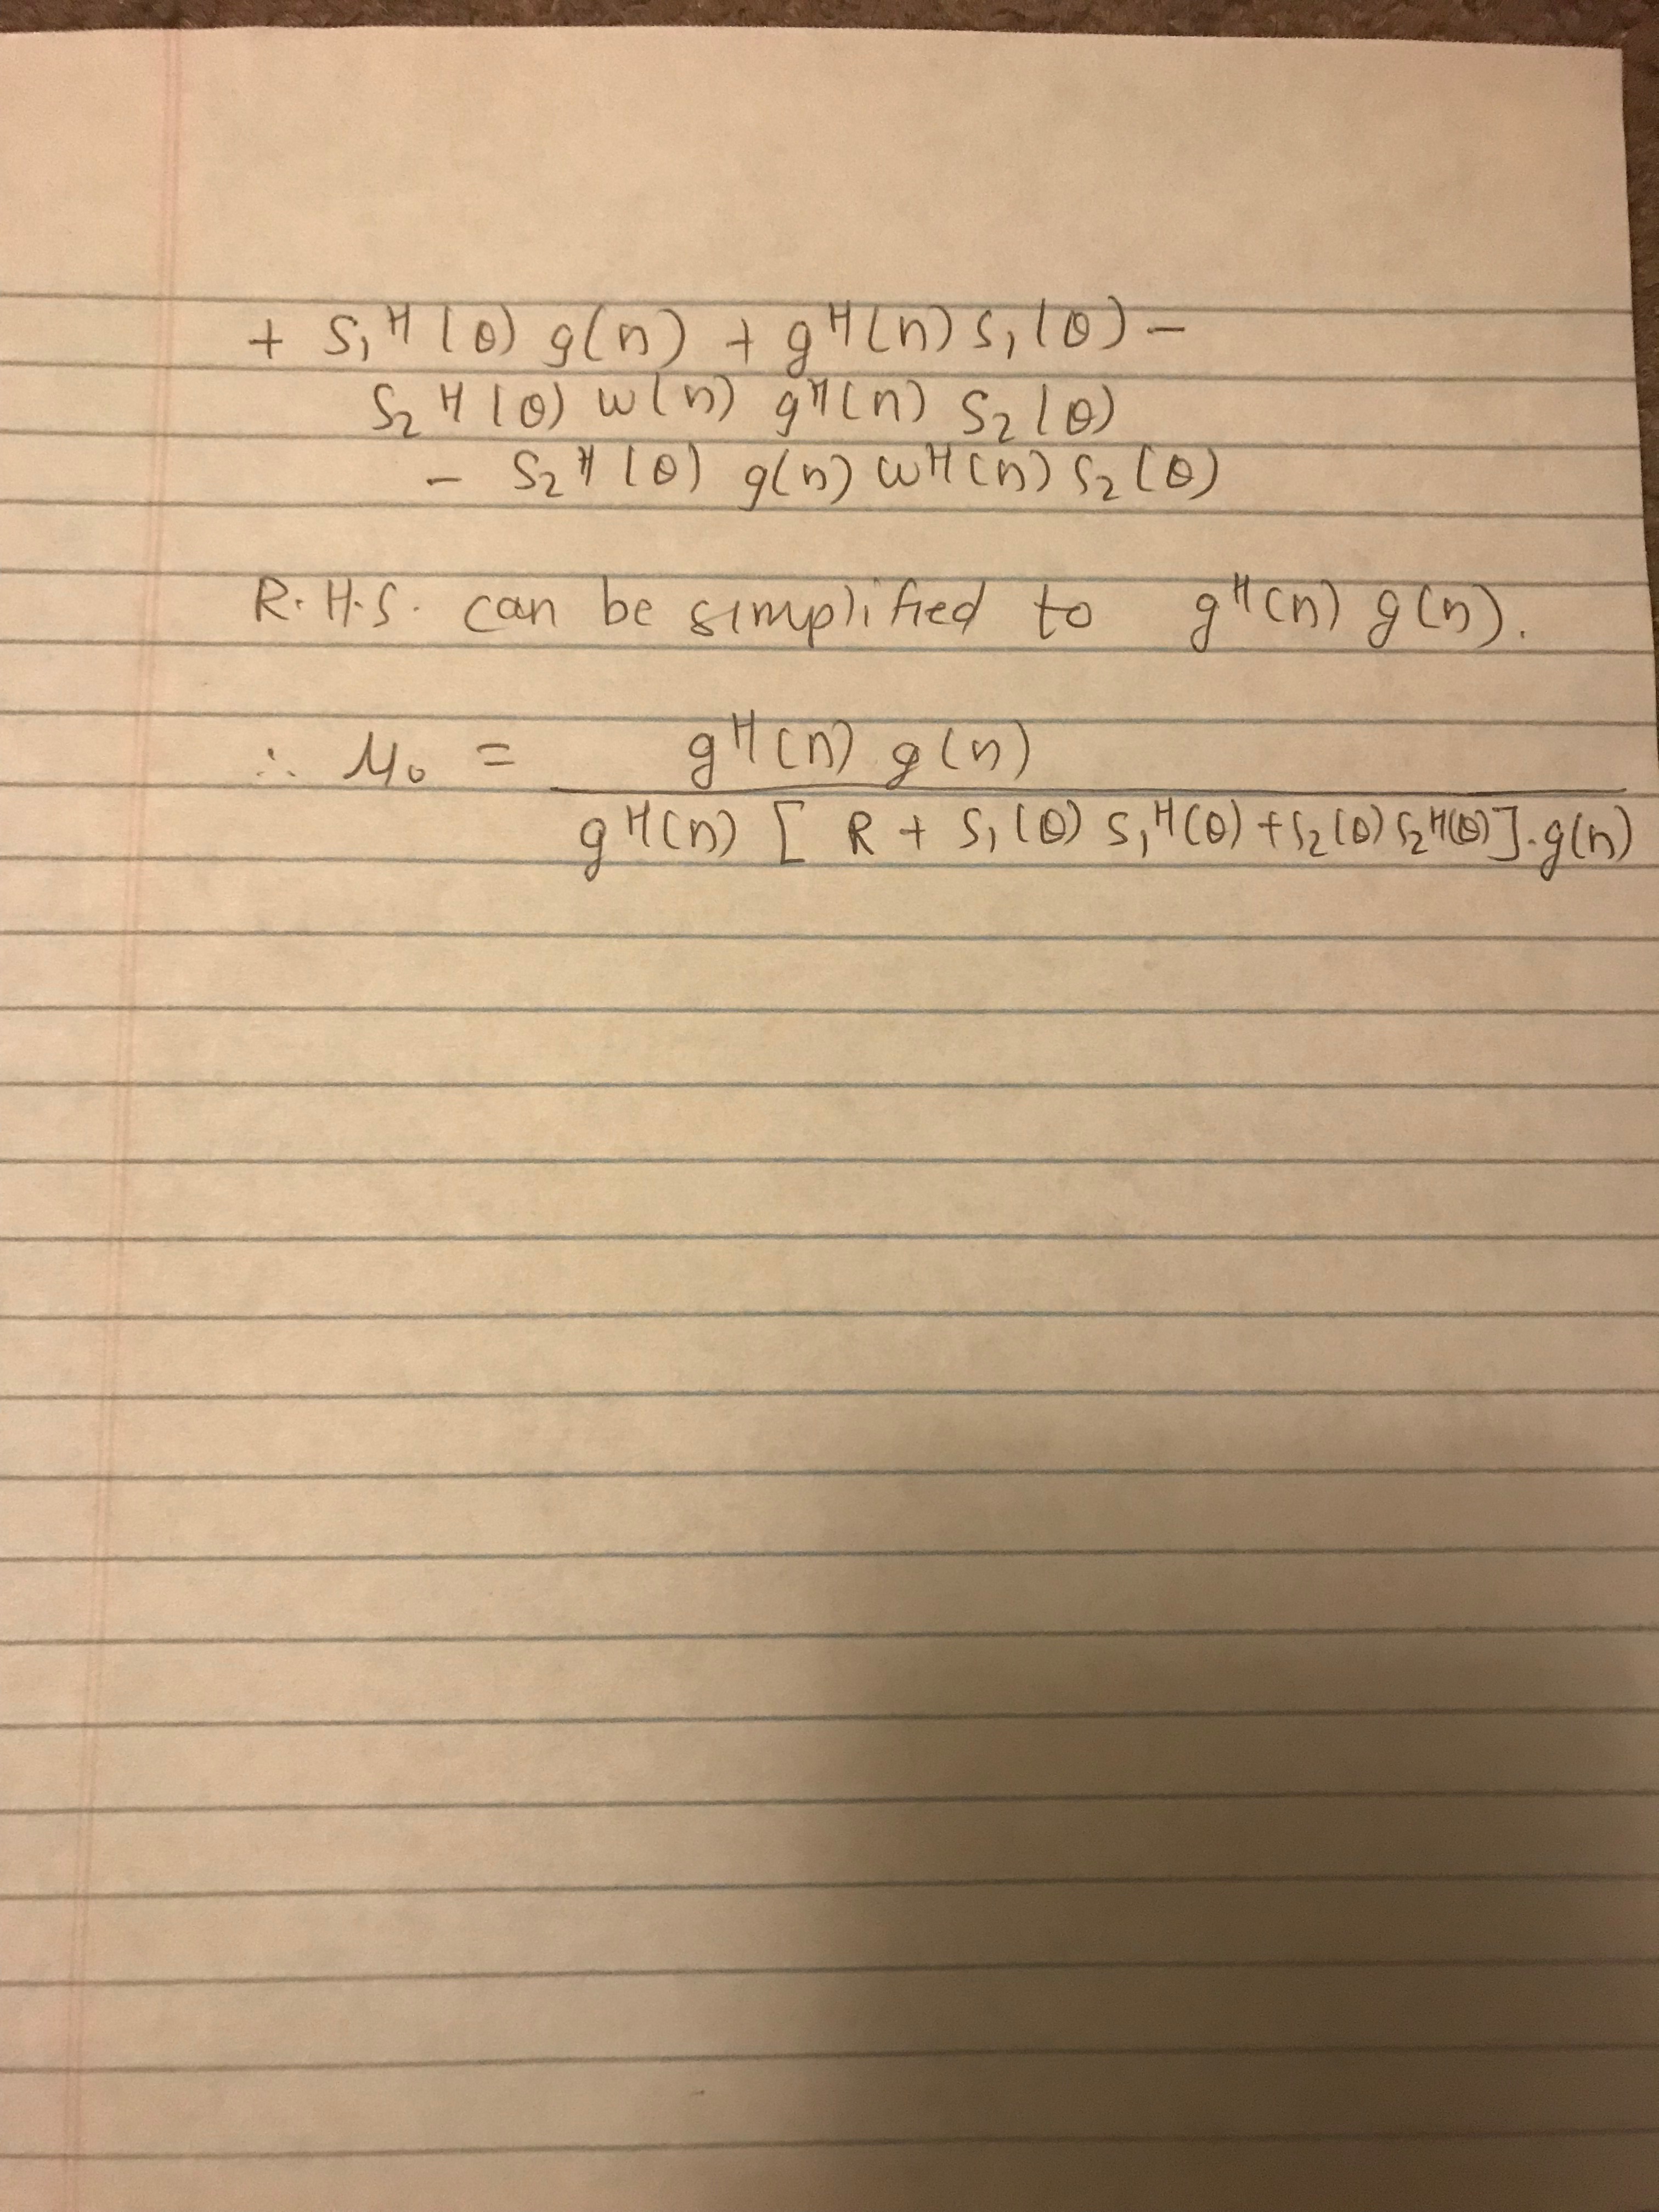 + S₁ᴴ(θ) g(n) + gᴴ(n) S₁(θ) −
S₂ᴴ(θ) w(n) gᴴ(n) S₂(θ)
− S₂ᴴ(θ) g(n) wᴴ(n) S₂(θ)
R.H.S. can be simplified to gᴴ(n) g(n).
∴ μ₀ = gᴴ(n) g(n)
gᴴ(n) [ R + S₁(θ) S₁ᴴ(θ) + S₂(θ) S₂ᴴ(θ)].g(n)